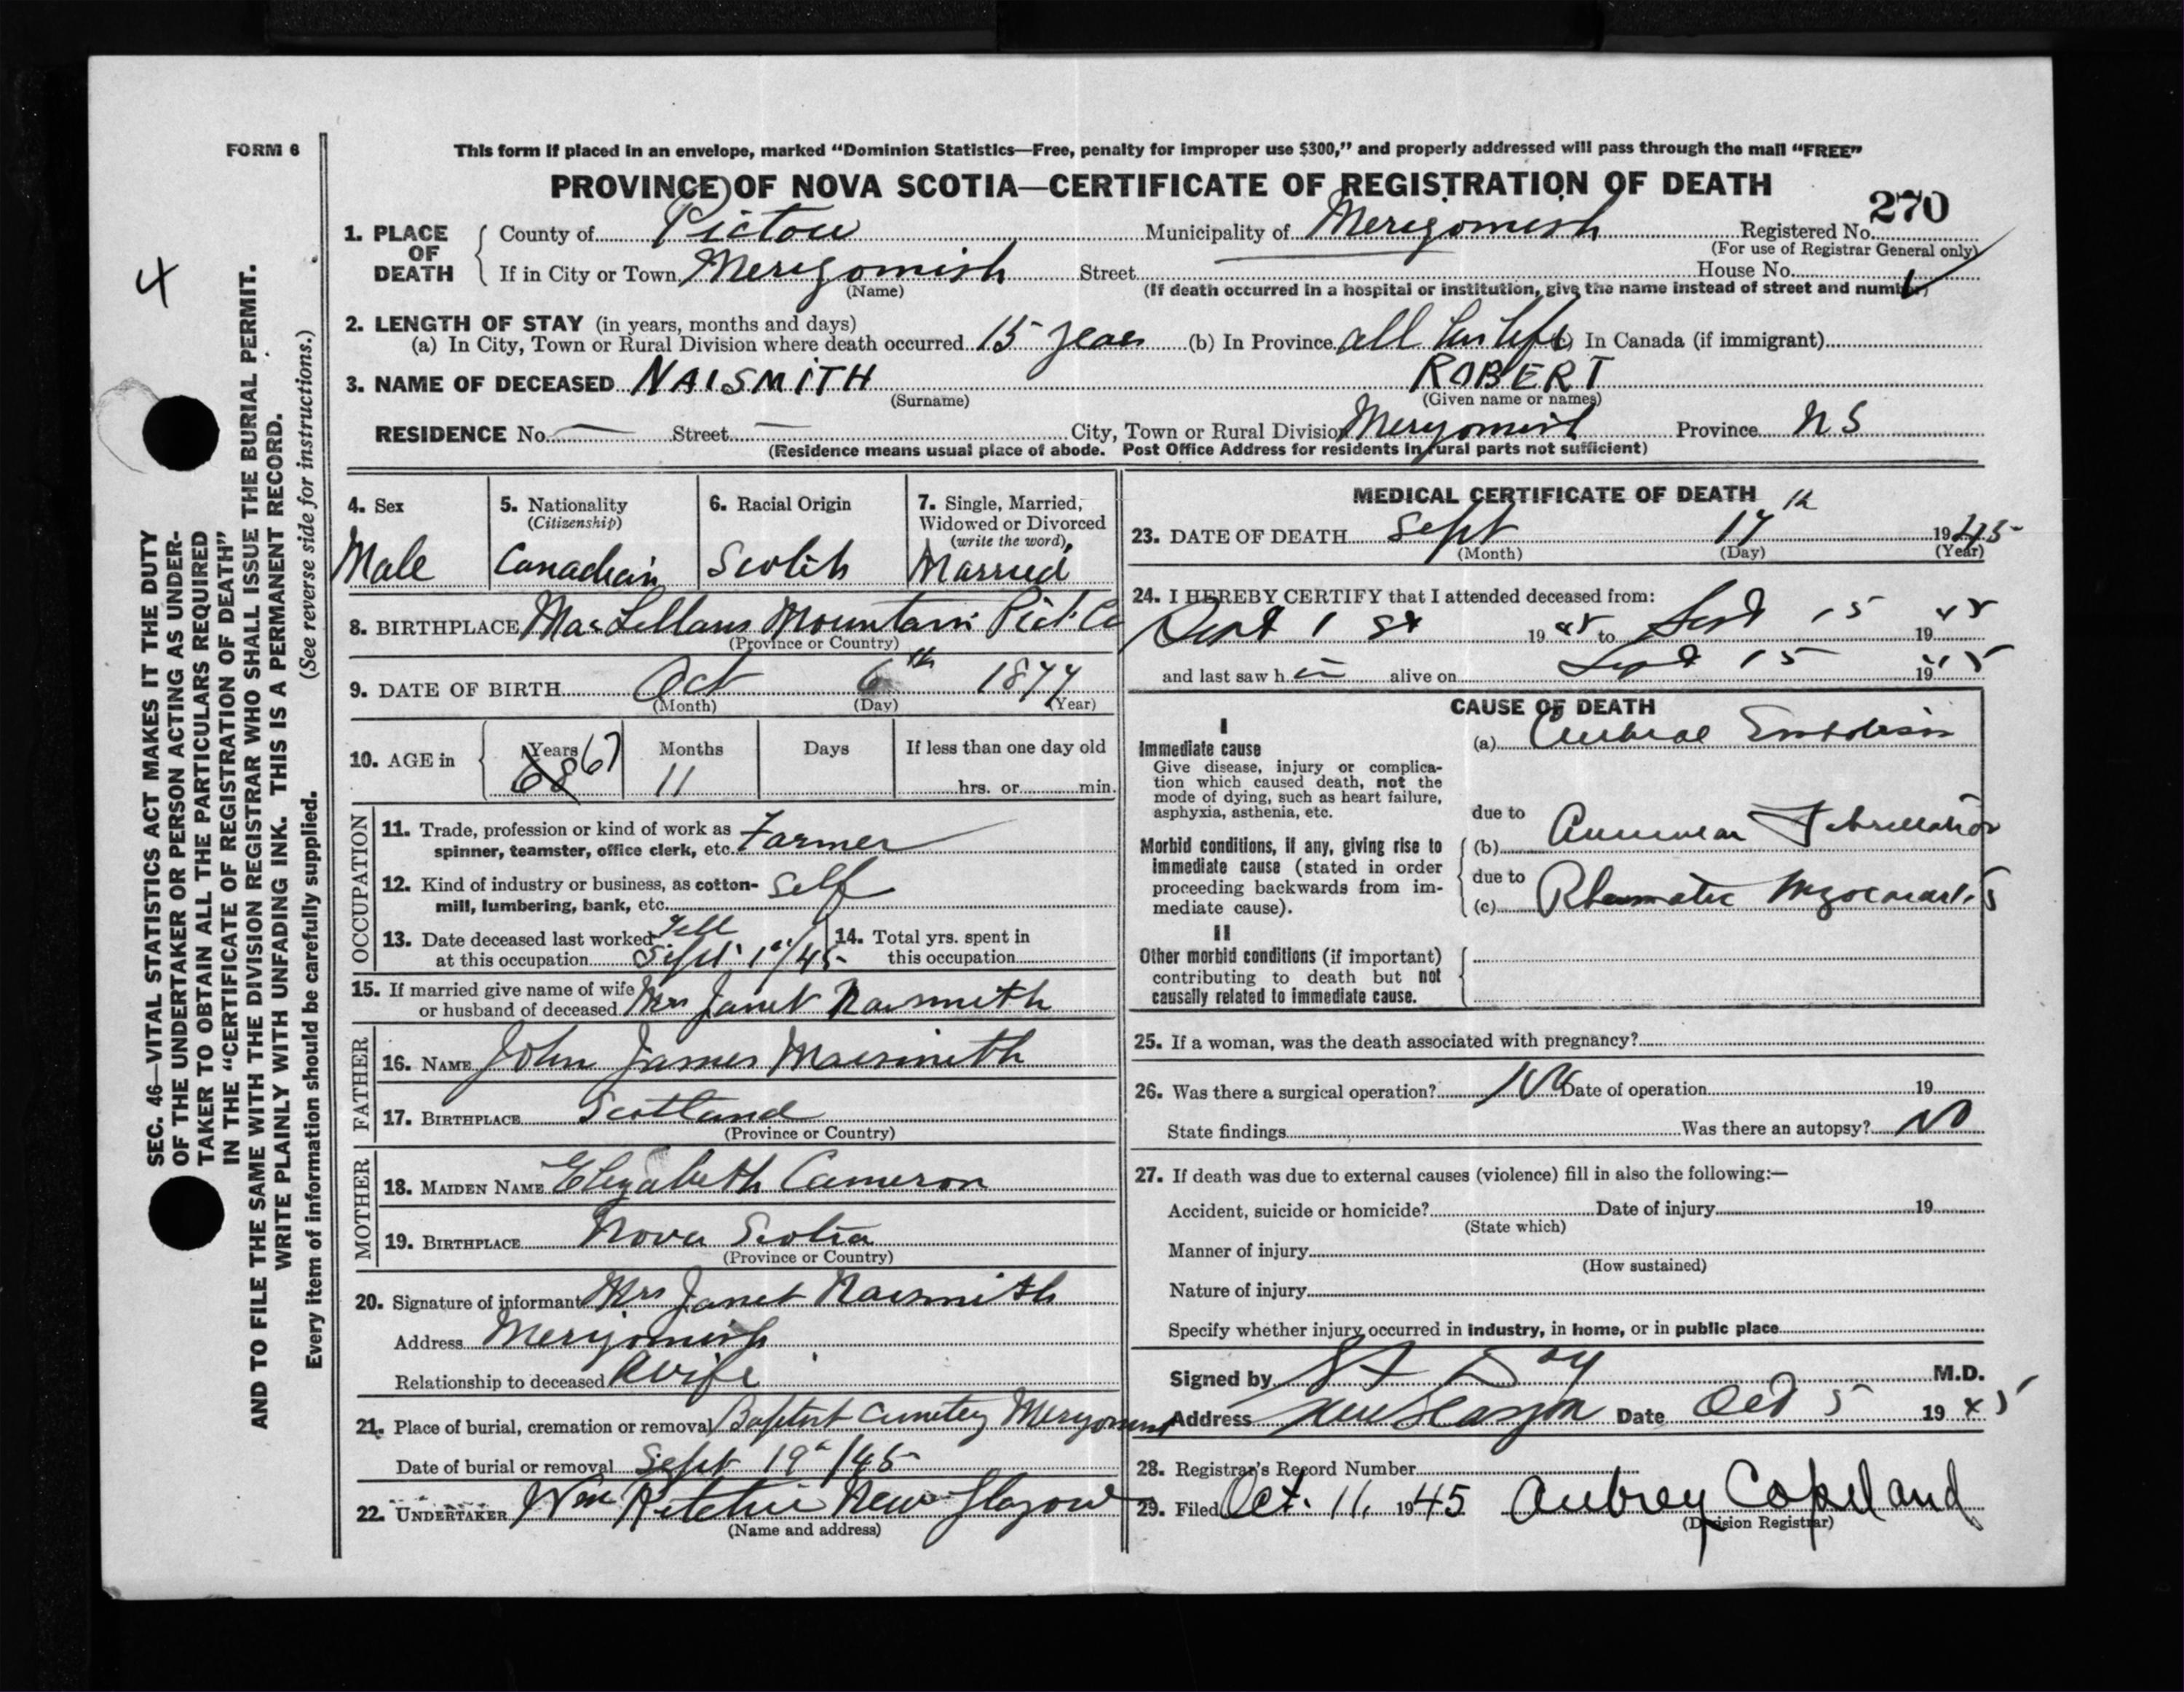 FORM 6
This form if placed in an envelope, marked "Dominion Statistics—Free, penalty for improper use $300," and properly addressed will pass through the mail "FREE"
PROVINCE OF NOVA SCOTIA—CERTIFICATE OF REGISTRATION OF DEATH
270
1. PLACE OF DEATH
County of Pictou Municipality of Merigomish Registered No.
(For use of Registrar General only)
If in City or Town Merigomish Street House No.
(Name) (If death occurred in a hospital or institution, give the name instead of street and number)
4
2. LENGTH OF STAY (in years, months and days)
(a) In City, Town or Rural Division where death occurred 15 years (b) In Province all his life (c) In Canada (if immigrant)
3. NAME OF DECEASED NAISMITH ROBERT
(Surname) (Given name or names)
RESIDENCE No. — Street — City, Town or Rural Division Merigomish Province N S
(Residence means usual place of abode. Post Office Address for residents in rural parts not sufficient)
SEC. 46—VITAL STATISTICS ACT MAKES IT THE DUTY
OF THE UNDERTAKER OR PERSON ACTING AS UNDER-
TAKER TO OBTAIN ALL THE PARTICULARS REQUIRED
IN THE "CERTIFICATE OF REGISTRATION OF DEATH"
AND TO FILE THE SAME WITH THE DIVISION REGISTRAR WHO SHALL ISSUE THE BURIAL PERMIT.
WRITE PLAINLY WITH UNFADING INK. THIS IS A PERMANENT RECORD.
Every item of information should be carefully supplied. (See reverse side for instructions.)
4. Sex
Male
5. Nationality
(Citizenship)
Canadian
6. Racial Origin
Scotch
7. Single, Married,
Widowed or Divorced
(write the word)
Married
8. BIRTHPLACE MacLellans Mountain Pict. Co
(Province or Country)
9. DATE OF BIRTH Oct 6th 1877
(Month) (Day) (Year)
10. AGE in
Years Months Days If less than one day old
68 67 11 hrs. or min.
OCCUPATION
11. Trade, profession or kind of work as
spinner, teamster, office clerk, etc. Farmer
12. Kind of industry or business, as cotton-
mill, lumbering, bank, etc. Self
13. Date deceased last worked
at this occupation Sept 1st/45
14. Total yrs. spent in
this occupation
15. If married give name of wife
or husband of deceased Mrs Janet Naismith
FATHER
16. NAME John James Naismith
17. BIRTHPLACE Scotland
(Province or Country)
MOTHER
18. MAIDEN NAME Elizabeth Cameron
19. BIRTHPLACE Nova Scotia
(Province or Country)
20. Signature of informant Mrs Janet Naismith
Address Merigomish
Relationship to deceased Wife
21. Place of burial, cremation or removal Baptist Cemetery Merigomish
Date of burial or removal Sept 19th/45
22. UNDERTAKER Wm Ritchie New Glasgow
(Name and address)
MEDICAL CERTIFICATE OF DEATH
23. DATE OF DEATH Sept 17th 1945
(Month) (Day) (Year)
24. I HEREBY CERTIFY that I attended deceased from:
Sept 1 st 19 45 to Sept 15 19 45
and last saw h im alive on Sept 15 19 45
CAUSE OF DEATH
I
Immediate cause
Give disease, injury or complica-
tion which caused death, not the
mode of dying, such as heart failure,
asphyxia, asthenia, etc.
(a) Cerebral Embolism
due to
Morbid conditions, if any, giving rise to
immediate cause (stated in order
proceeding backwards from im-
mediate cause).
(b) Auricular Fibrillation
due to
(c) Rheumatic Myocarditis
II
Other morbid conditions (if important)
contributing to death but not
causally related to immediate cause.
25. If a woman, was the death associated with pregnancy?
26. Was there a surgical operation? No Date of operation 19
State findings Was there an autopsy? No
27. If death was due to external causes (violence) fill in also the following:—
Accident, suicide or homicide? Date of injury 19
(State which)
Manner of injury
(How sustained)
Nature of injury
Specify whether injury occurred in industry, in home, or in public place
Signed by Day M.D.
Address New Glasgow Date Oct 5 19 45
28. Registrar's Record Number
29. Filed Oct. 11, 1945 Aubrey Copeland
(Division Registrar)